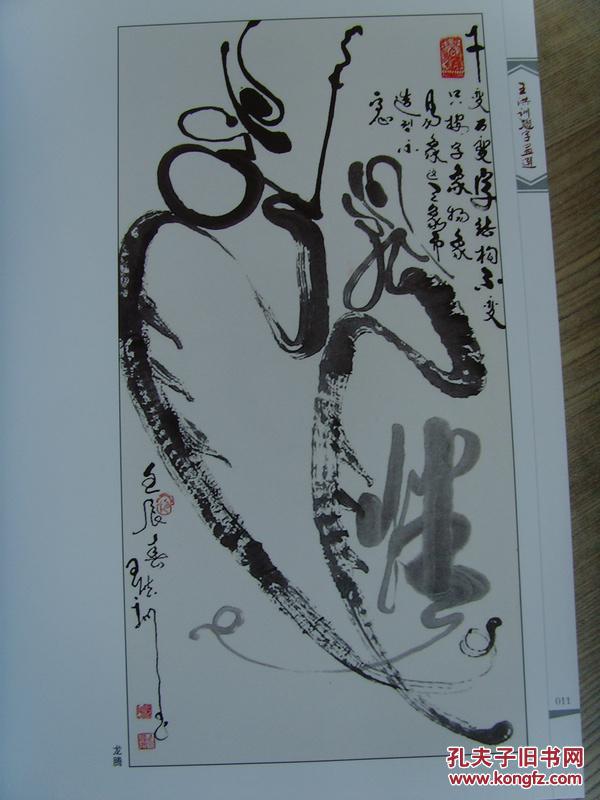 千变万变字结构不变
只据字象物象
易象这三象而
造型不
王洪训题字品选
壬辰春
王洪训
011
龙腾
孔夫子旧书网
www.kongfz.com